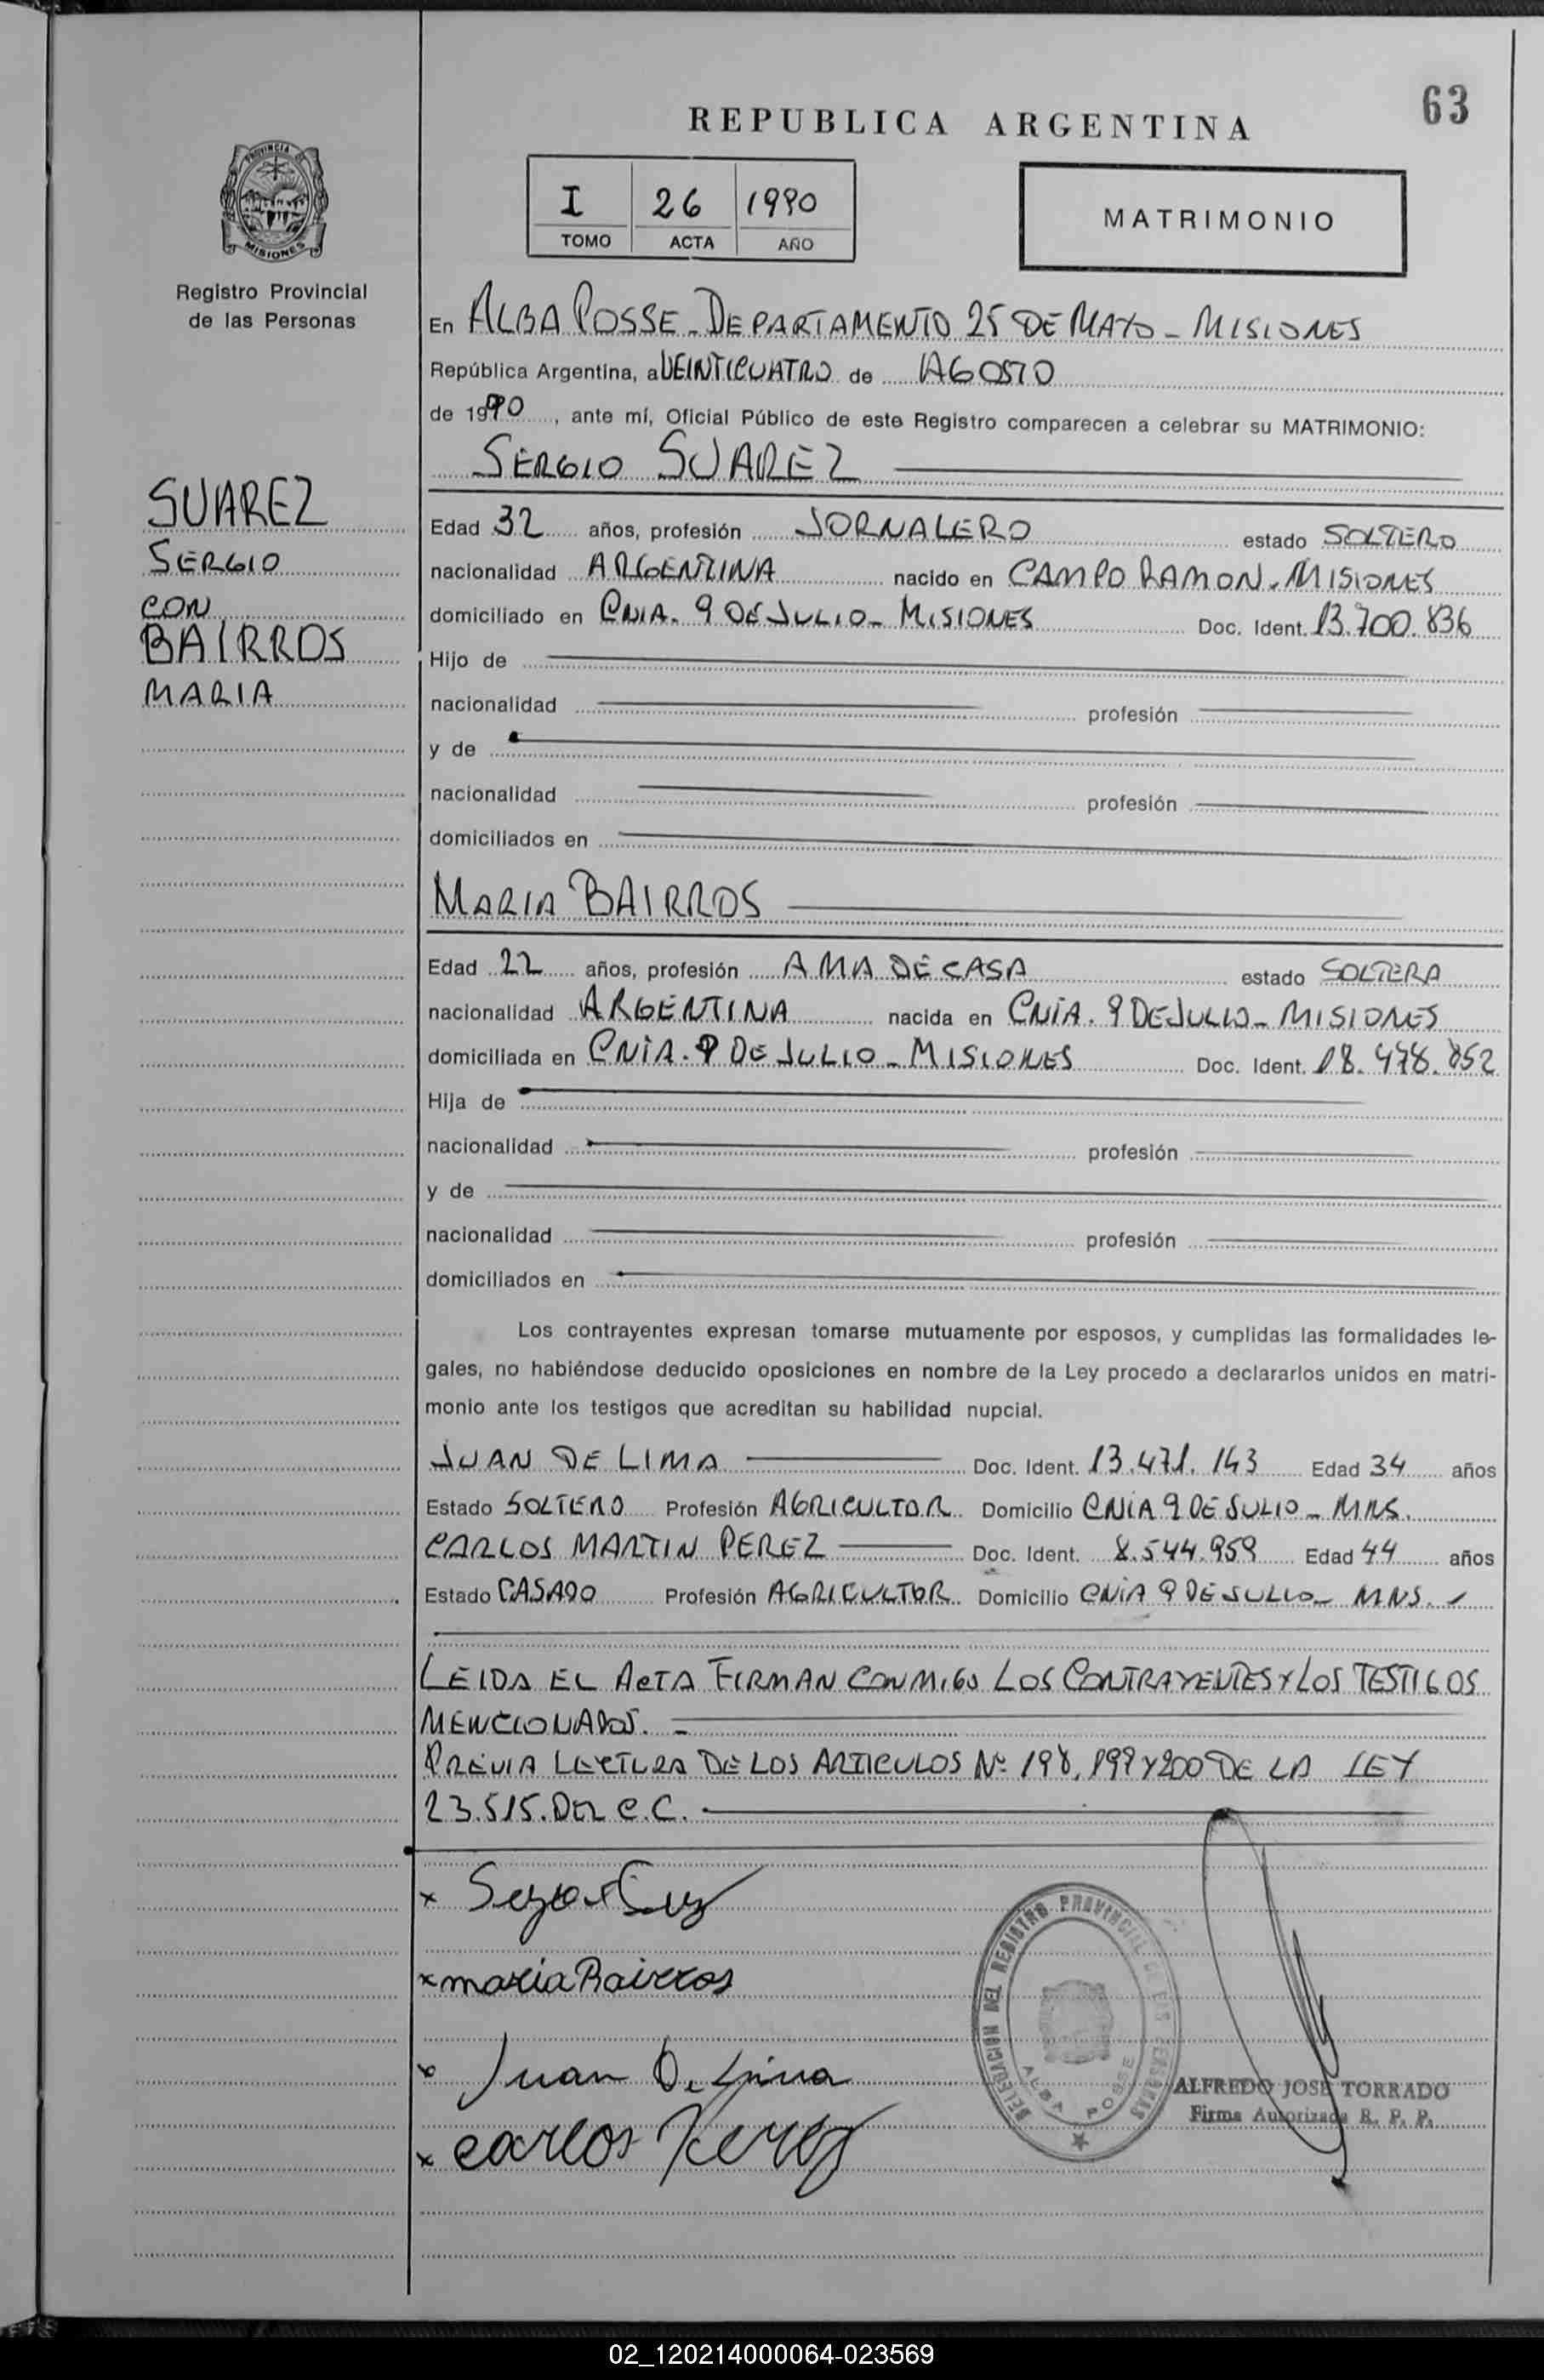 63
REPUBLICA ARGENTINA
PROVINCIA DE
MISIONES
Registro Provincial
de las Personas
I 26 1990
TOMO ACTA AÑO
MATRIMONIO
En ALBA POSSE - DEPARTAMENTO 25 DE MAYO - MISIONES
República Argentina, a VEINTICUATRO de AGOSTO
de 1990, ante mí, Oficial Público de este Registro comparecen a celebrar su MATRIMONIO:
SERGIO SUAREZ
SUAREZ
SERGIO
CON
BAIRROS
MARIA
Edad 32 años, profesión JORNALERO estado SOLTERO
nacionalidad ARGENTINA nacido en CAMPO RAMON - MISIONES
domiciliado en CNIA. 9 DE JULIO - MISIONES Doc. Ident. 13.700.836
Hijo de
nacionalidad profesión
y de
nacionalidad profesión
domiciliados en
MARIA BAIRROS
Edad 22 años, profesión AMA DE CASA estado SOLTERA
nacionalidad ARGENTINA nacida en CNIA. 9 DE JULIO - MISIONES
domiciliada en CNIA. 9 DE JULIO - MISIONES Doc. Ident. 18.478.852
Hija de
nacionalidad profesión
y de
nacionalidad profesión
domiciliados en
Los contrayentes expresan tomarse mutuamente por esposos, y cumplidas las formalidades le-
gales, no habiéndose deducido oposiciones en nombre de la Ley procedo a declararlos unidos en matri-
monio ante los testigos que acreditan su habilidad nupcial.
JUAN DE LIMA Doc. Ident. 13.471.143 Edad 34 años
Estado SOLTERO Profesión AGRICULTOR Domicilio CNIA 9 DE JULIO - MNS.
CARLOS MARTIN PEREZ Doc. Ident. 8.544.959 Edad 44 años
Estado CASADO Profesión AGRICULTOR Domicilio CNIA 9 DE JULIO - MNS.
LEIDA EL ACTA FIRMAN CONMIGO LOS CONTRAYENTES Y LOS TESTIGOS
MENCIONADOS. -
PREVIA LECTURA DE LOS ARTICULOS Nº 198, 199 Y 200 DE LA LEY
23.515. DEL C.C.
x maria Bairros
x Juan De Lima
x carlos Perez
DELEGACION DEL REGISTRO PROVINCIAL DE LAS PERSONAS
ALBA POSSE
ALFREDO JOSE TORRADO
Firma Autorizada R. P. P.
02_120214000064-023569